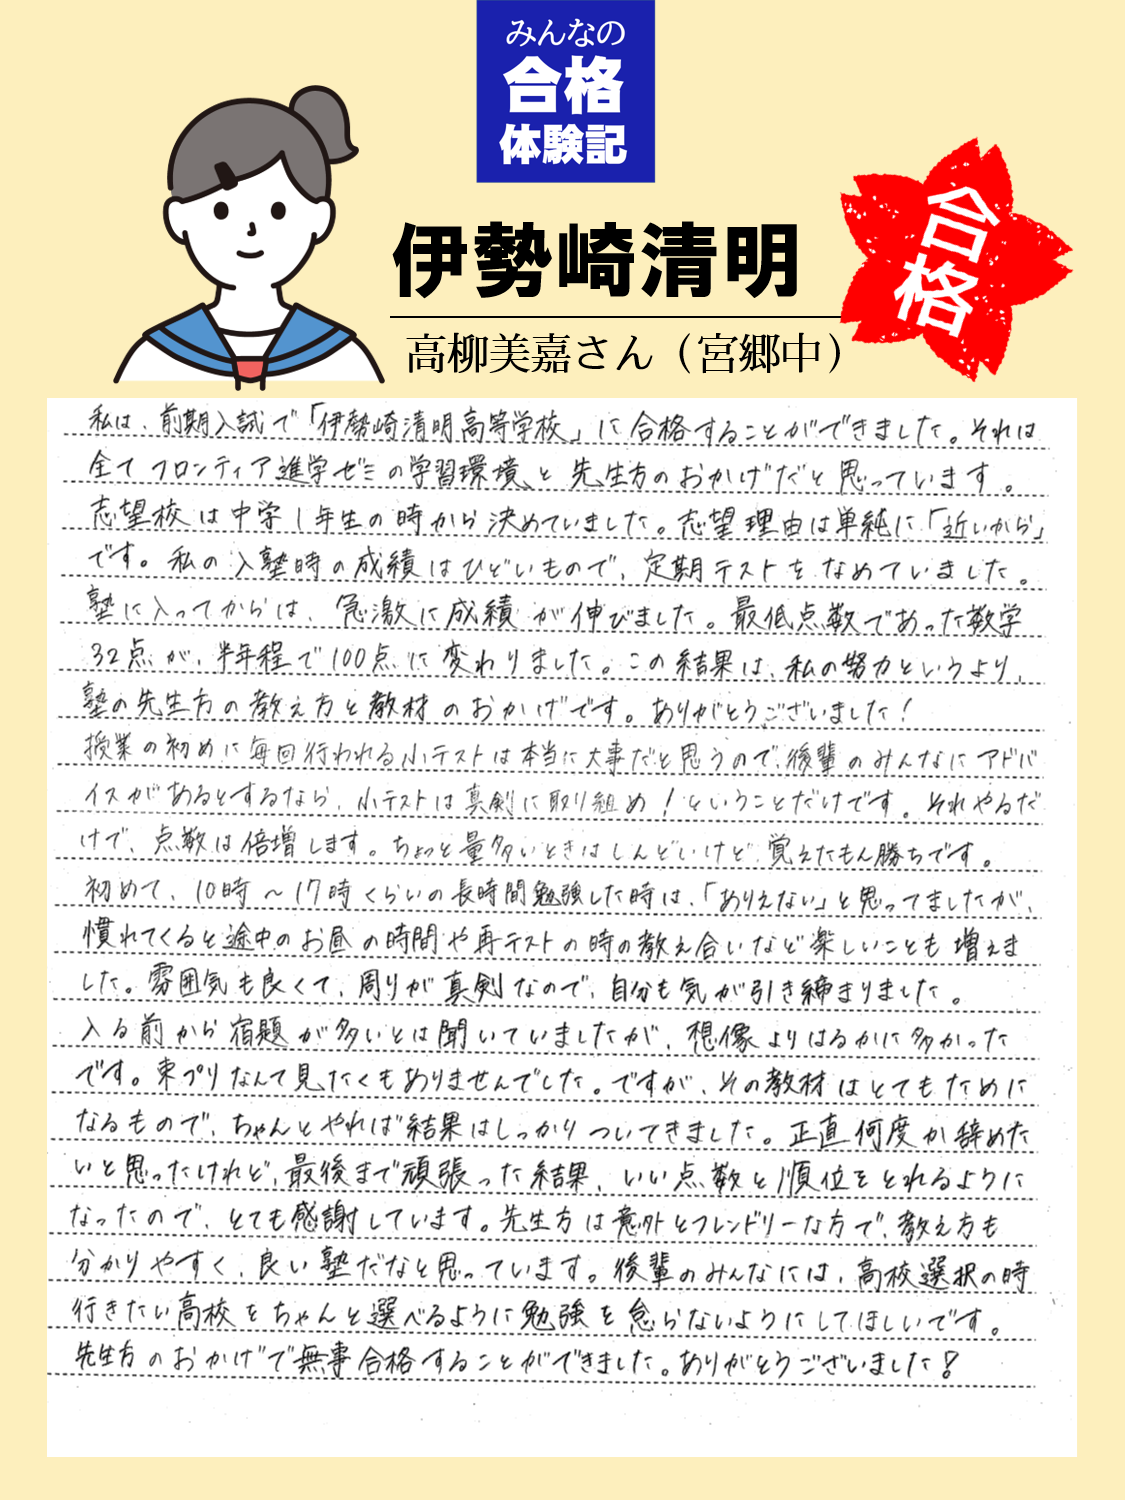 みんなの
合格
体験記
伊勢崎清明
合格
高柳美嘉さん（宮郷中）
私は、前期入試で「伊勢崎清明高等学校」に合格することができました。それは
全てフロンティア進学ゼミの学習環境と先生方のおかげだと思っています。
志望校は中学1年生の時から決めていました。志望理由は単純に「近いから」
です。私の入塾時の成績はひどいもので、定期テストをなめていました。
塾に入ってからは、急激に成績が伸びました。最低点数であった数学
32点が、半年程で100点に変わりました。この結果は、私の努力というより、
塾の先生方の教え方と教材のおかげです。ありがとうございました！
授業の初めに毎回行われる小テストは本当に大事だと思うので、後輩のみんなにアドバ
イスがあるとするなら、小テストは真剣に取り組め！ということだけです。それやるだ
けで、点数は倍増します。ちょっと量多いときはしんどいけど、覚えたもん勝ちです。
初めて、10時～17時くらいの長時間勉強した時は、「ありえない」と思ってましたが、
慣れてくると途中のお昼の時間や再テストの時の教え合いなど楽しいことも増えま
した。雰囲気も良くて、周りが真剣なので、自分も気が引き締まりました。
入る前から宿題が多いとは聞いていましたが、想像よりはるかに多かった
です。束プリなんて見たくもありませんでした。ですが、その教材はとてもために
なるもので、ちゃんとやれば結果はしっかりついてきました。正直何度か辞めた
いと思ったけれど、最後まで頑張った結果、いい点数と順位をとれるように
なったので、とても感謝しています。先生方は意外とフレンドリーな方で、教え方も
分かりやすく、良い塾だなと思っています。後輩のみんなには、高校選択の時
行きたい高校をちゃんと選べるように勉強を怠らないようにしてほしいです。
先生方のおかげで無事合格することができました。ありがとうございました！